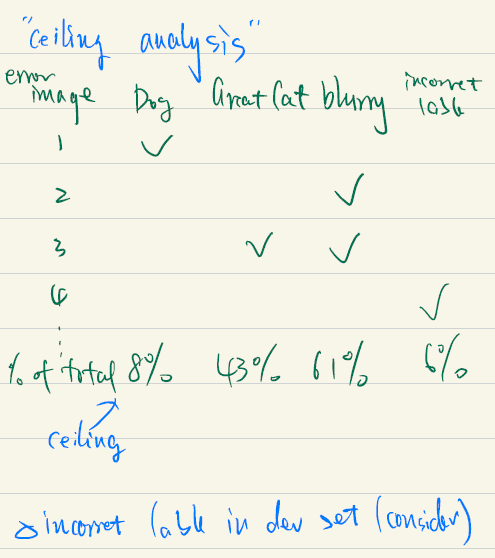 "ceiling analysis"
error image Dog Great Cat blurry incorret lable
1 ✓
2 ✓
3 ✓ ✓
4 ✓
⋮
% of total 8% 43% 61% 6%
ceiling
incorret lable in dev set (consider)